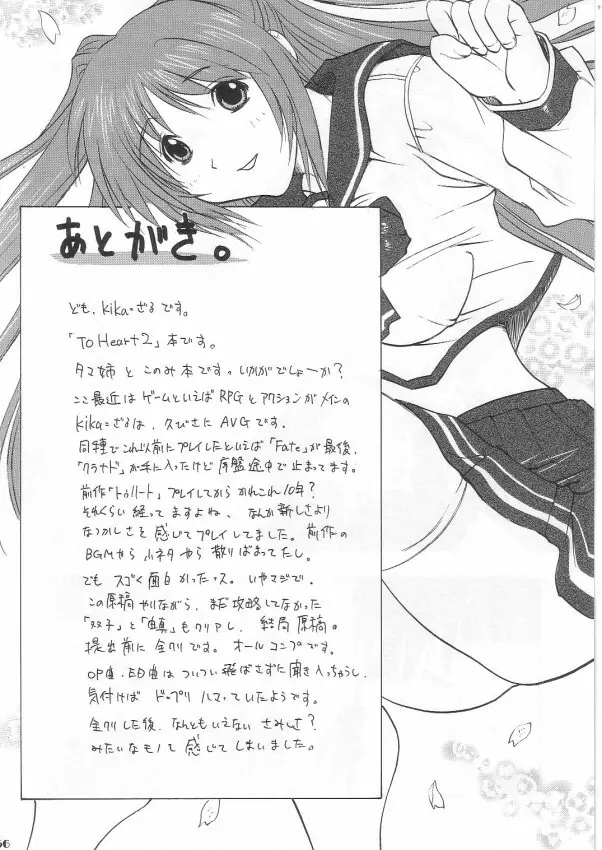 あとがき。
ども、kika=ざるです。
「To Heart2」本です。
タマ姉とこのみ本ですっいかがでしょーか?
ここ最近はゲームといえばRPGとアクションがメインの
kika=ざるは、久びさにAVGです。
同種でこれ以前にプレイしたといえば「Fate」が最後、
「クラナド」が手に入ったけど序盤途中で止まってます。
前作「トゥハート」プレイしてからかれこれ10年?
それくらい経ってますよね、なんか新しさより
なつかしさを感じてプレイしてました。前作の
BGMやら小ネタやら散りばまってたし。
でもスゴく面白かったっス。いやマジで。
この原稿やりながら、まだ攻略してなかった
「双子」と「由真」もクリアし、結局原稿。
提出前に全クリです。オールコンプです。
OP曲・ED曲はついつい飛ばさずに聞き入っちゃうし、
気付けばドップリハマっていたようです。
全クリした後、なんともいえないさみしさ?
みたいなモノて感じてしまいました。
56